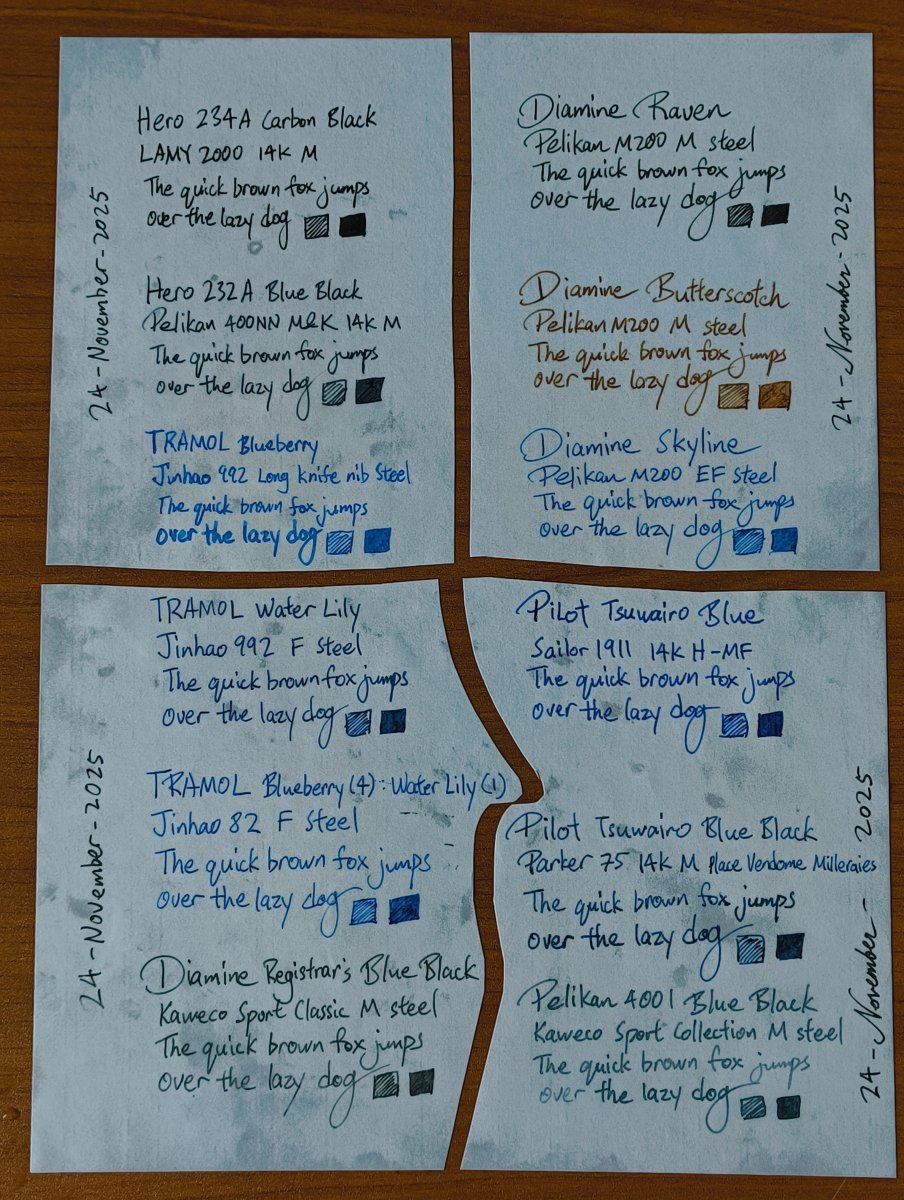 24-November-2025
Hero 234A Carbon Black
LAMY 2000 14K M
The quick brown fox jumps
over the lazy dog
Hero 232A Blue Black
Pelikan 400NN M&K 14K M
The quick brown fox jumps
over the lazy dog
TRAMOL Blueberry
Jinhao 992 Long knife nib Steel
The quick brown fox jumps
over the lazy dog
Diamine Raven
Pelikan M200 M steel
The quick brown fox jumps
over the lazy dog
Diamine Butterscotch
Pelikan M200 M steel
The quick brown fox jumps
over the lazy dog
Diamine Skyline
Pelikan M200 EF steel
The quick brown fox jumps
over the lazy dog
24-November-2025
24-November-2025
TRAMOL Water Lily
Jinhao 992 F Steel
The quick brown fox jumps
over the lazy dog
TRAMOL Blueberry(4):Water Lily(1)
Jinhao 82 F Steel
The quick brown fox jumps
over the lazy dog
Diamine Registrar's Blue Black
Kaweco Sport Classic M steel
The quick brown fox jumps
over the lazy dog
Pilot Tsuwairo Blue
Sailor 1911 14K H-MF
The quick brown fox jumps
over the lazy dog
Pilot Tsuwairo Blue Black
Parker 75 14K M Place Vendome Milleraies
The quick brown fox jumps
over the lazy dog
Pelikan 4001 Blue Black
Kaweco Sport Collection M steel
The quick brown fox jumps
over the lazy dog
24-November-2025